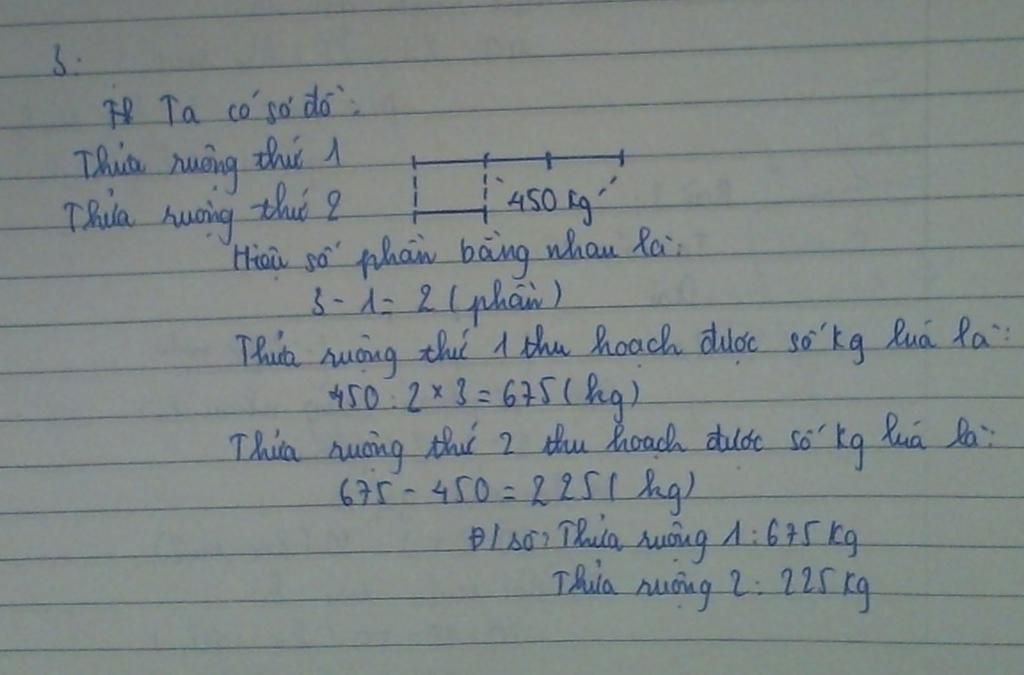 3:
Ta có sơ đồ:
Thửa ruộng thứ 1
450 kg
Thửa ruộng thứ 2
Hiệu số phần bằng nhau là:
3 - 1 = 2 (phần)
Thửa ruộng thứ 1 thu hoạch được số kg luá là:
450 : 2 × 3 = 675 (kg)
Thửa ruộng thứ 2 thu hoạch được số kg luá là:
675 - 450 = 225 (kg)
Đ/số: Thửa ruộng 1: 675 kg
Thửa ruộng 2: 225 kg